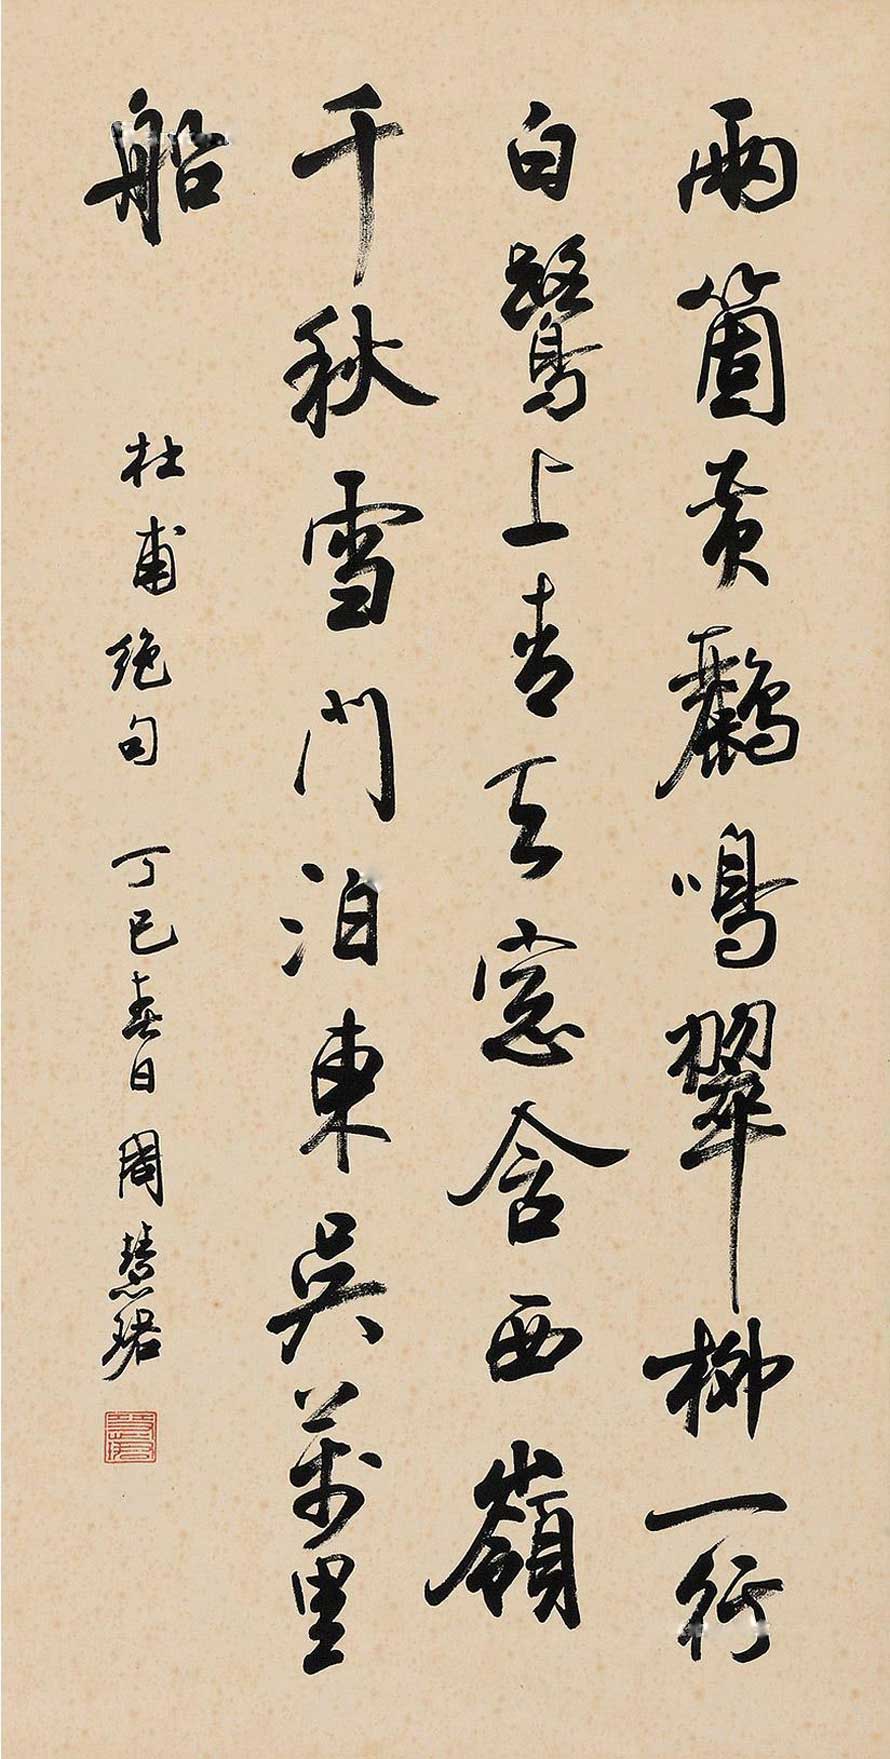 兩箇黄鸝鳴翠柳一行
白鷺上青天窓含西嶺
千秋雪門泊東吳萬里
船
杜甫絕句 丁巳春日 周慧珺